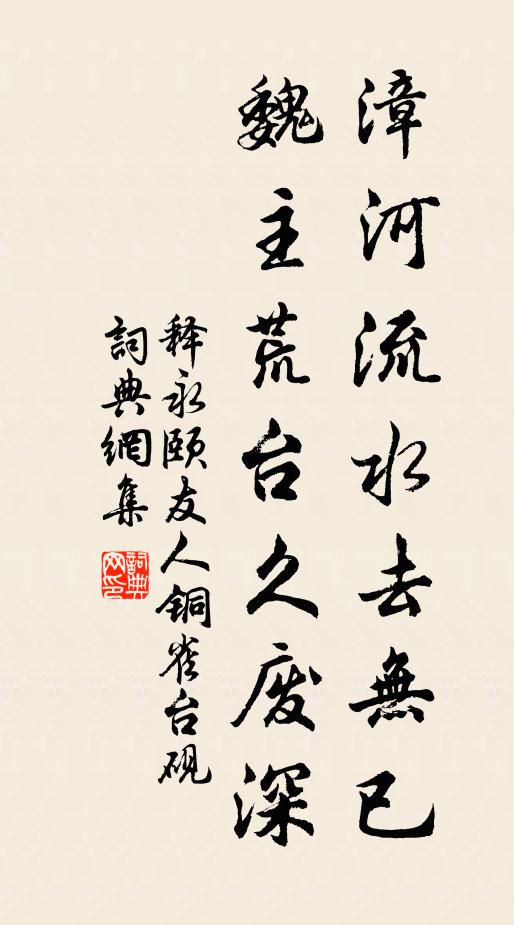 漳河流水去無已
魏主荒台久废深
释永颐友人铜雀台砚
詞典網集
詞典網印